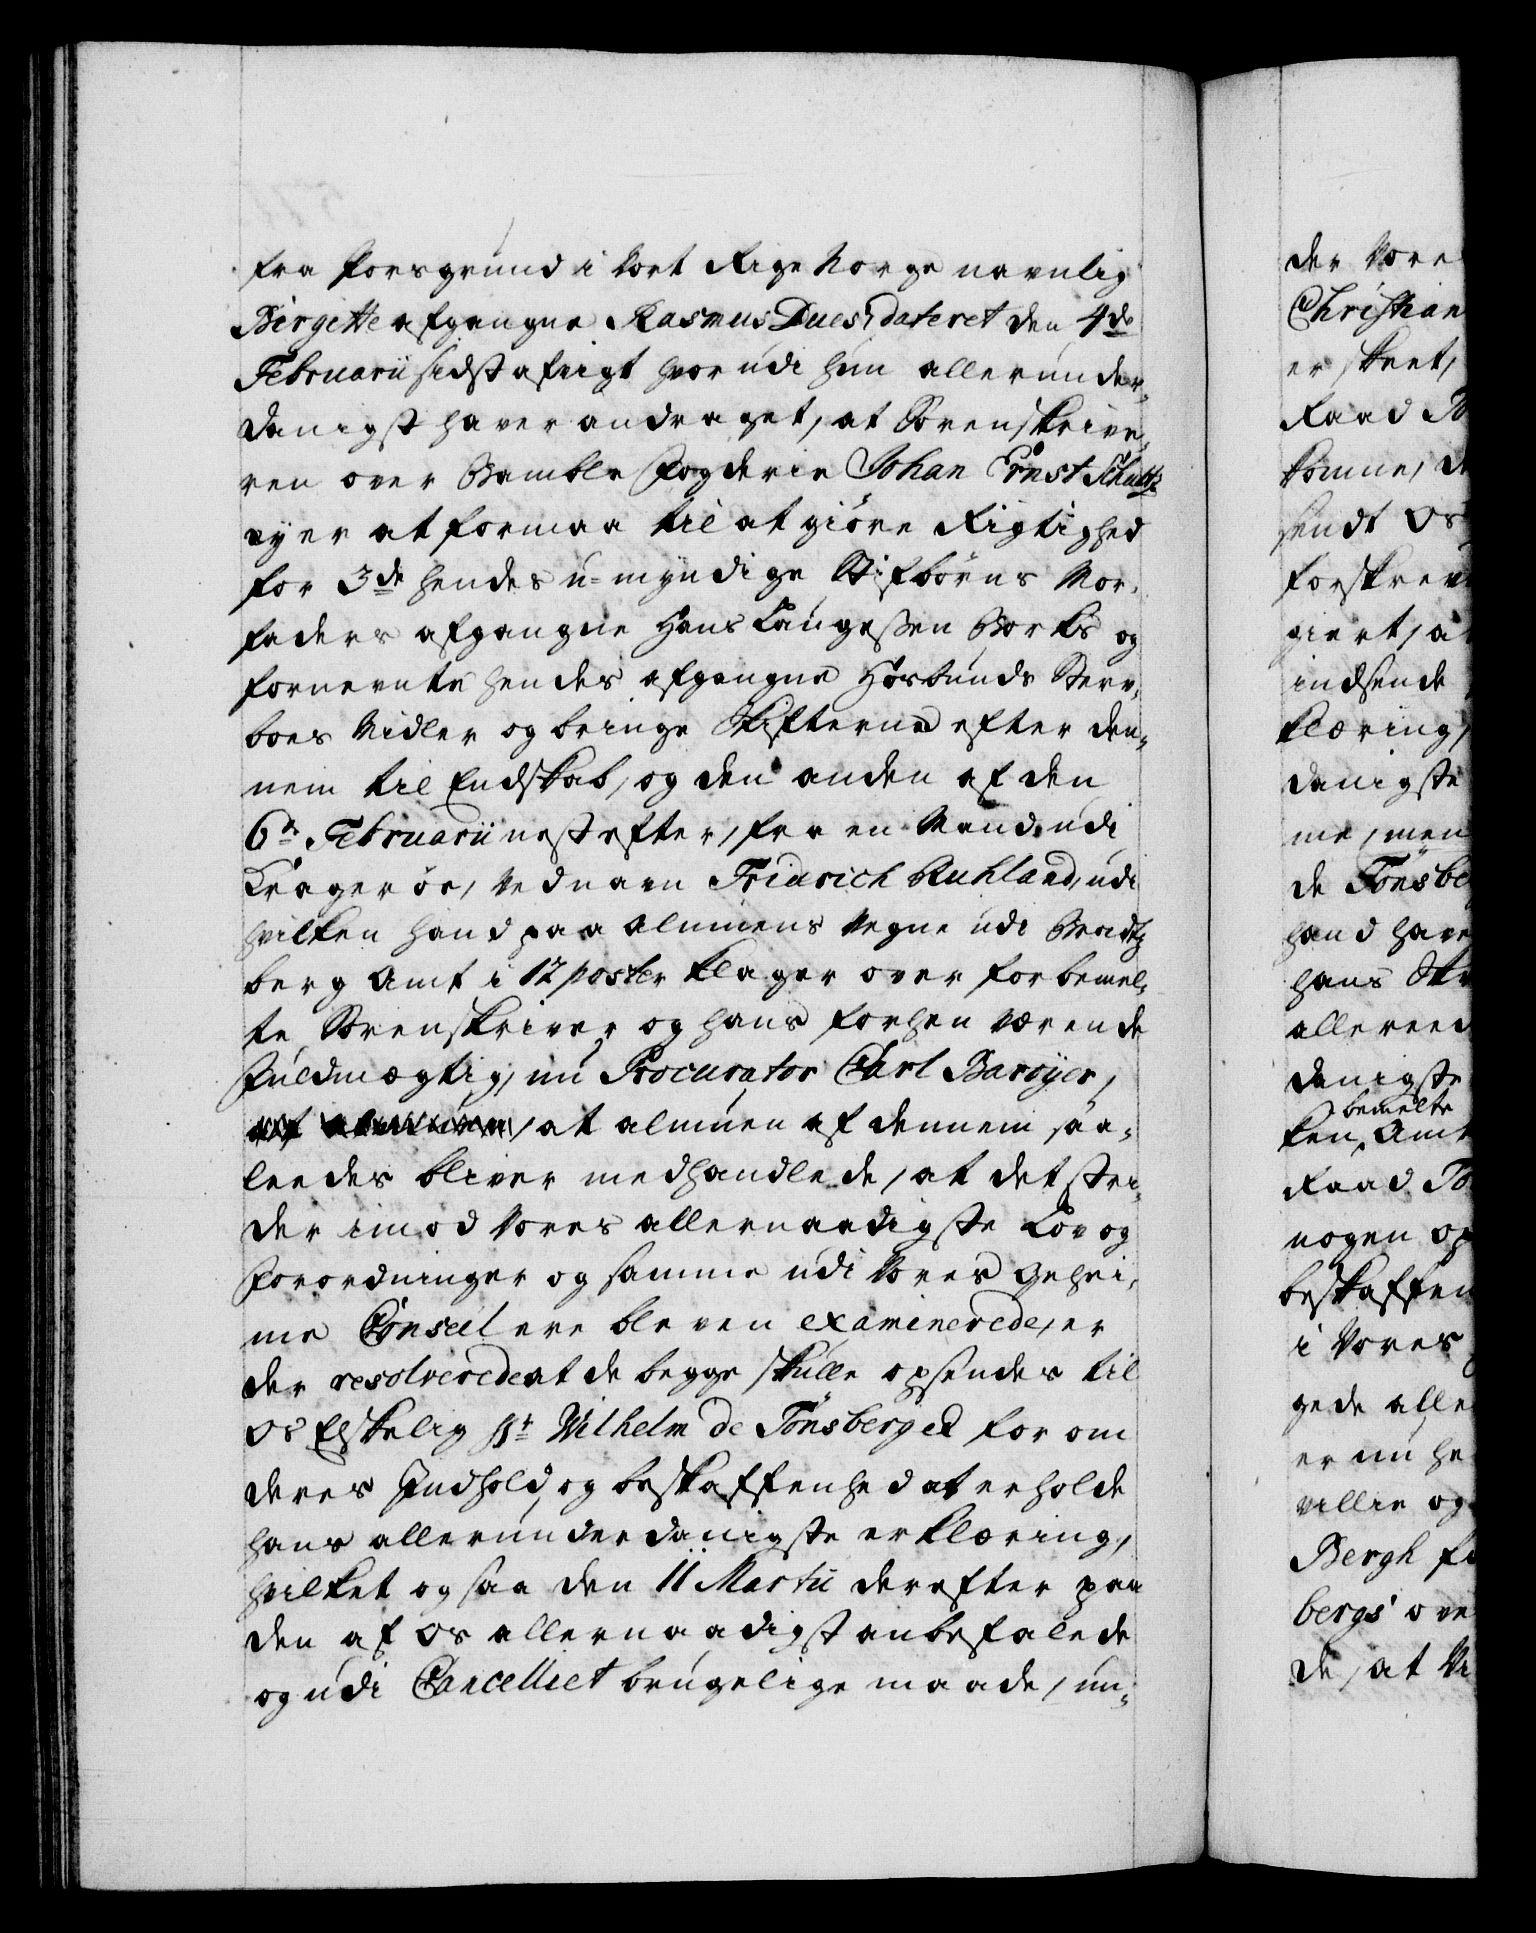 fra Porsgrund i Vort Rige Norge navnlig
Birgette afgangne Rasmus Dues, dateret den 4de
Februarii sidst afvigt hvorudi hun allerunder-
danigst haver andraget, at Sorenskrive-
ren over Bamble Fogderie Johan Ernst Schultz
ej er at formaa til at giöre Rigtighed
for 3de hendes u-myndige Stifbörns Mor-
faders afgangne Hans Laugessen Borks og
fornevnte hendes afgangne Hosbunds Sterv-
boes Midler og bringe Skifterne efter den-
nem til Endskab, og den anden af den
6te Februarii nest efter, fra en Mand udi
Krageröe, ved navn Fridrich Ruhland, udi
hvilken hand paa almuens Vegne udi Bradtz
berg Amt i 12 poster klager over forbemel-
te Sorenskriver og hans forhen værende
Fuldmægtig, nu Procurator Carl Baroyer,
at almuen af dennem saa-
leedes bliver medhandlede, at det stri-
der imod Vores allernaadigste Lov og
Forordninger og samme udi Vores Gehei-
me Conseil ere bleven examinerede, er
der resolverede at de begge skulle opsendes til
Os Elskelig Hr Wilhelm de Tönsberg ed for om
deres Indhold og beskaffenhed at erholde
hans allerunderdanigste erklæring,
hvilket og saa den 11 Martii derefter paa
den af Os allernaadigst anbefalede
og udi Cancelliet brugelige maade, un-
der Vore
Christian
er skeet,
Raad To
komme, de
sendt Os
forskrev
giert, at
indsende
klæring,
danigste
me, men
de Tönsbe
hand have
hans Skr
allereed
danigste
bemelte
ken Amt
Raad To
nogen op
beskaffen
i Vores
gede alle
er nu he
villie og
Bergh fr
bergs ove
de, at Vi